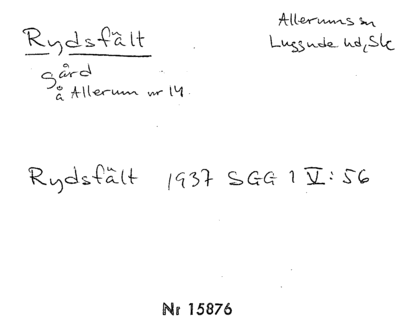 Rydsfält
Allerums sn
Luggude hd, Sk
gård
å Allerum nr 14
Rydsfält 1937 SGG 1 V: 56
Nr 15876